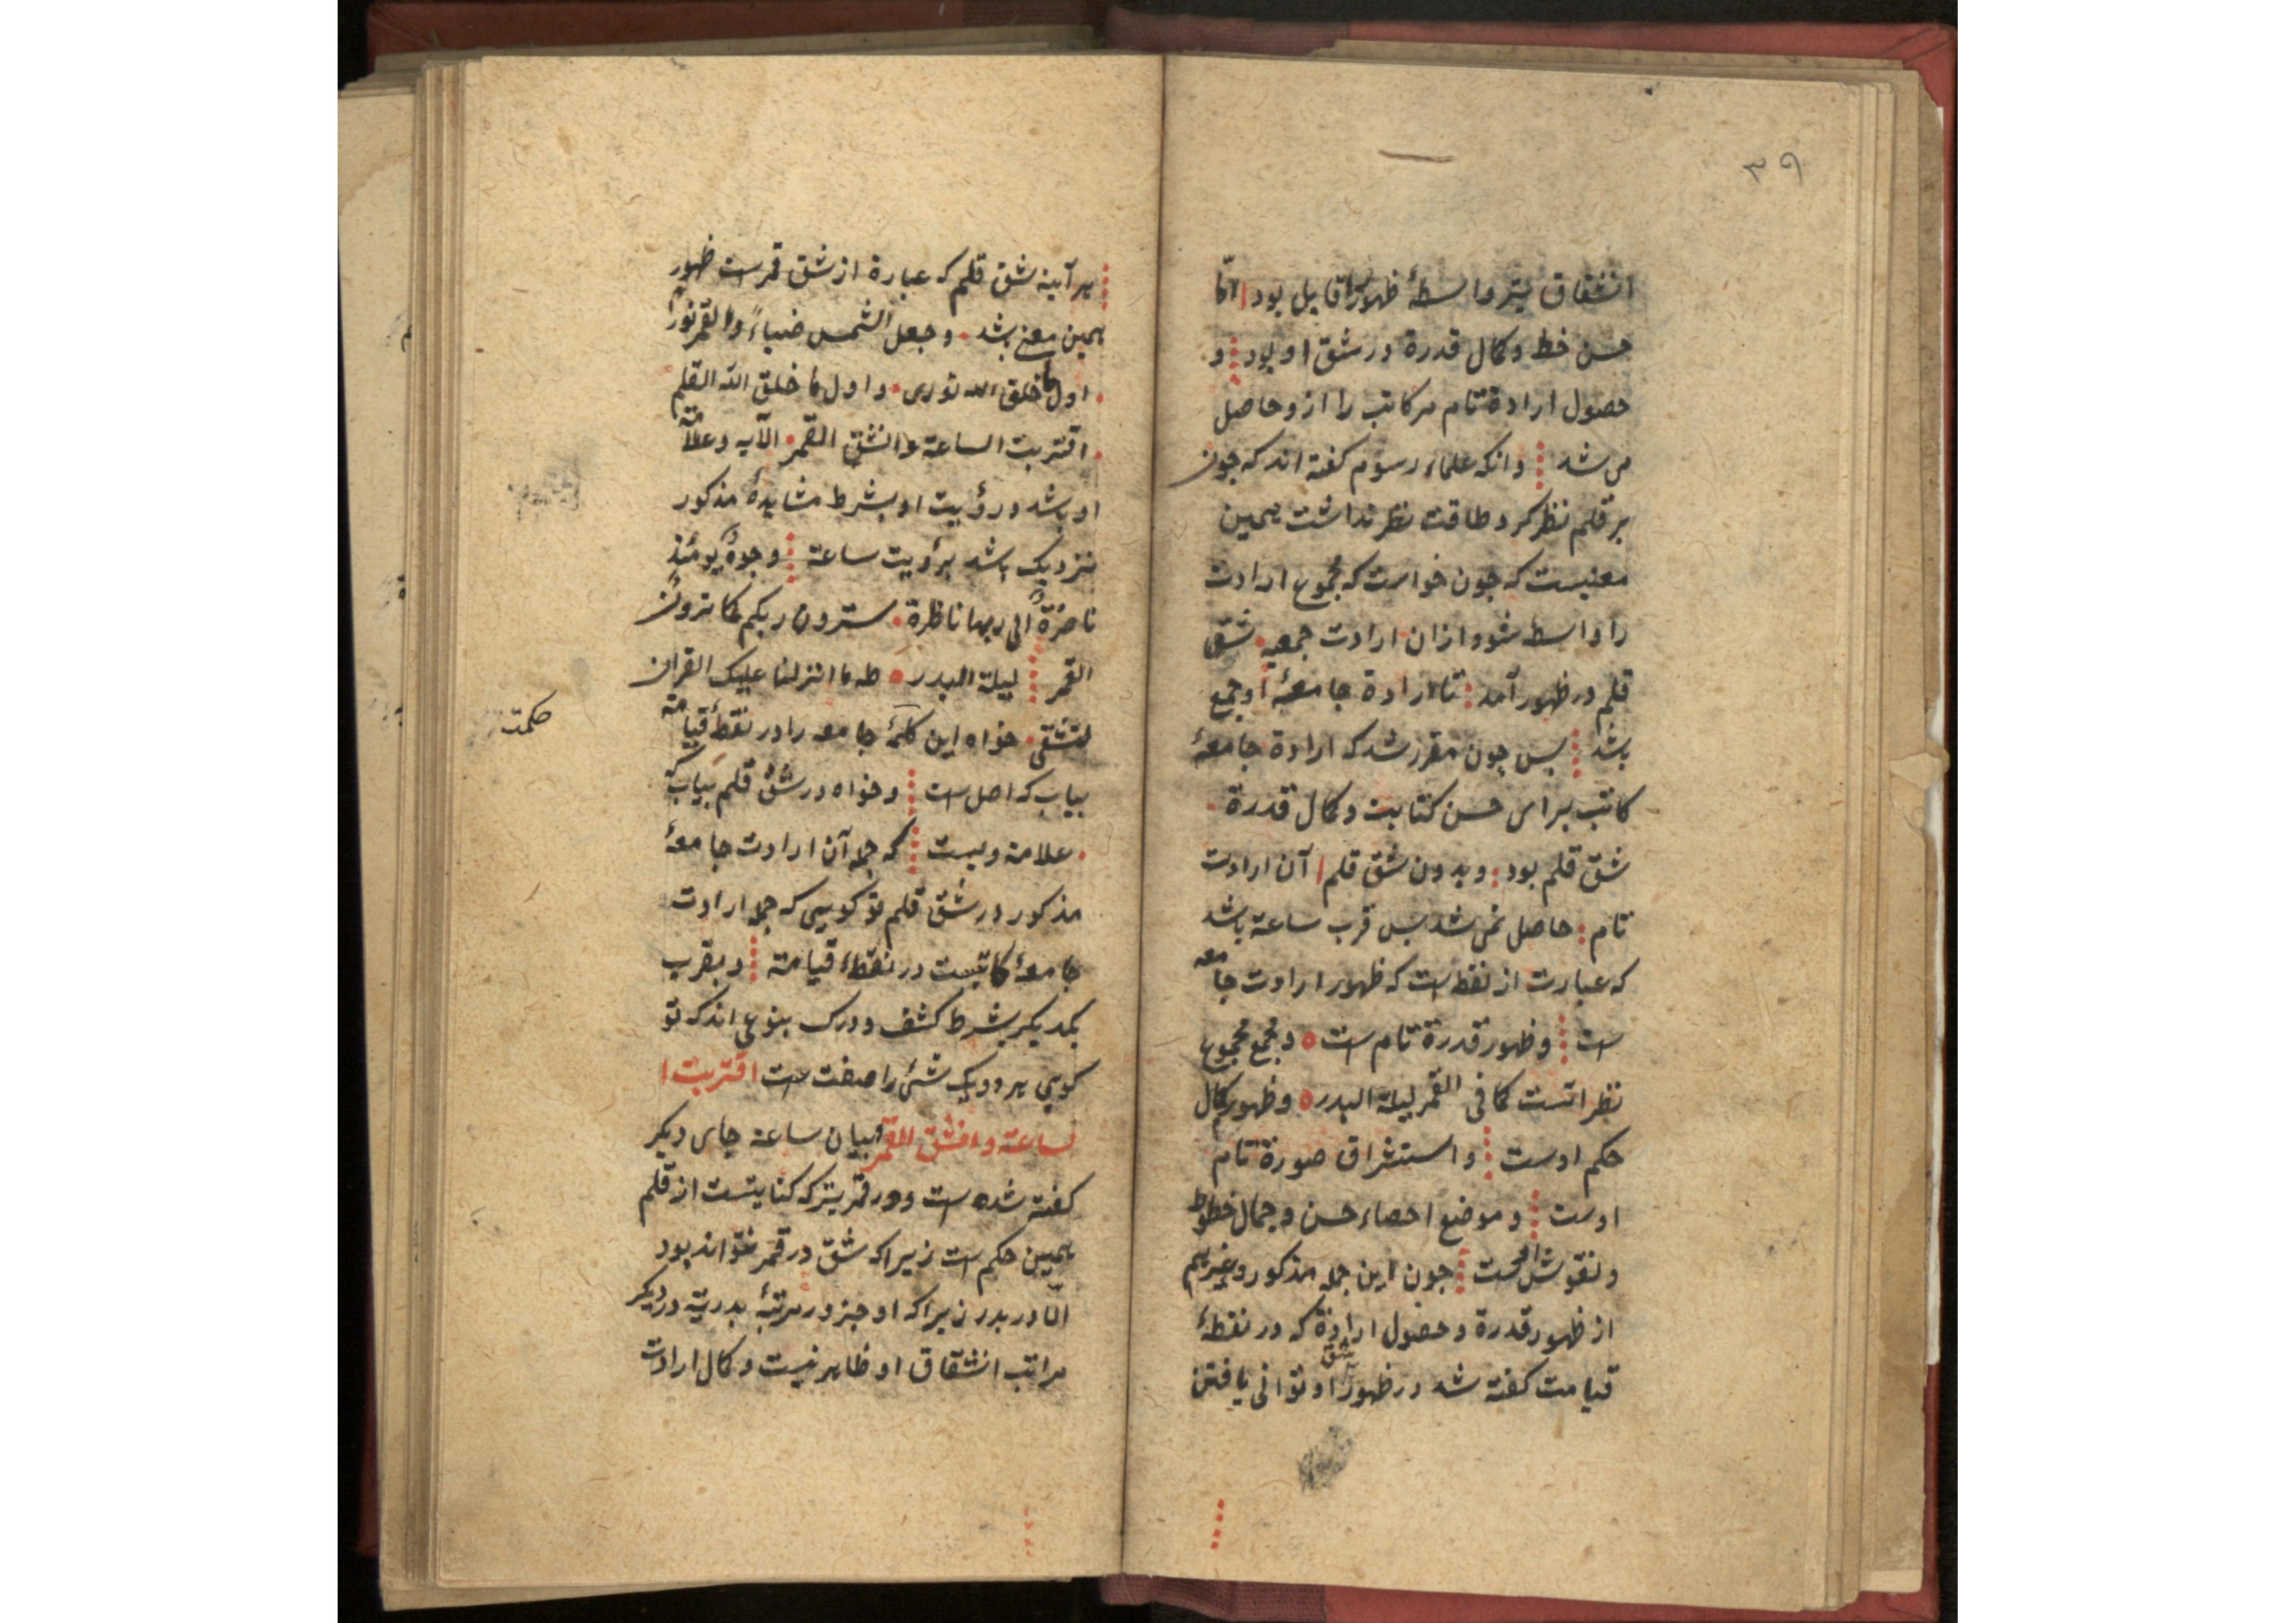 ۳۹
انشقاق نیز واسطهٔ ظهور اقابل بود امّا
حسن خط و کمال قدرة در شق او بود و
حصول ارادة تام مر کاتب را ازو حاصل
می شد وانکه علماء رسوم کفته اند که چون
بر قلم نظر کرد طاقت نظر نداشت همین
معنیست که چون خواست که مجموع ارادت
را واسطه شود ازان ارادت جمعیه شق
قلم در ظهور آمد تا ارادة جامعهٔ او جمع
باشد پس چون مقرر شد که ارادة جامعهٔ
کاتب برای حسن کتابت و کمال قدرة
شق قلم بود و بدون شق قلم آن ارادت
تام حاصل نمی شد پس قرب ساعة باشد
که عبارت از نقطه است که ظهور ارادت جامعه
است و ظهور قدرة تام است و مجمع مجموع
نظراتست کما فی القمر لیلة البدر و ظهور کمال
حکم اوست و استشراق صورة تام
اوست و موضع احصاء حسن و جمال خطوط
و نقوش چون این جمله مذکور و غیرهم
از ظهور قدرة و حصول ارادة که در نقطهٔ
قیامت کفته شد در ظهور شق او توانی یافتن
هر آینه شق قلم که عبارة از شق قمرست ظهور
همین معنی باشد وجعل الشمس ضیاءً والقمر نوراً
اول ما خلق الله نوری و اول ما خلق الله القلم
اقتربت الساعة وانشق القمر الآیه و علامة
او باشد و رؤیت او بشرط مشاهدهٔ مذکور
نزدیک باشد برؤیت ساعة وجوهٌ یومئذ
ناضرةٌ الی ربها ناظرة سترون ربکم کما ترون
القمر لیلة البدر طه ما انزلنا علیک القران
لتشقی خواه این کلمهٔ جامعه را در نقطهٔ قیامة
بیاب که اصل است و خواه در شق قلم بیاب که
علامة ویست که جمله آن ارادت جامعهٔ
حکمت
مذکور در شق قلم تو کویی که جمله ارادت
جامعهٔ کاتبست در نقطهٔ قیامة و بقرب
یکدیکر بشرط کشف و درک بنوعی اند که تو
کویی هر دو یک شئ را صفت است اقتربت ا
لساعة وانشق القمر بیان ساعة جای دیکر
کفته شده است و در قمر نیز که کنایتست از قلم
همین حکم است زیراکه شق در قمر نتواند بود
الّا در بدر زیراکه او جز در مرتبهٔ بدریة در دیکر
مراتب انشقاق او ظاهر نیست و کمال ارادت